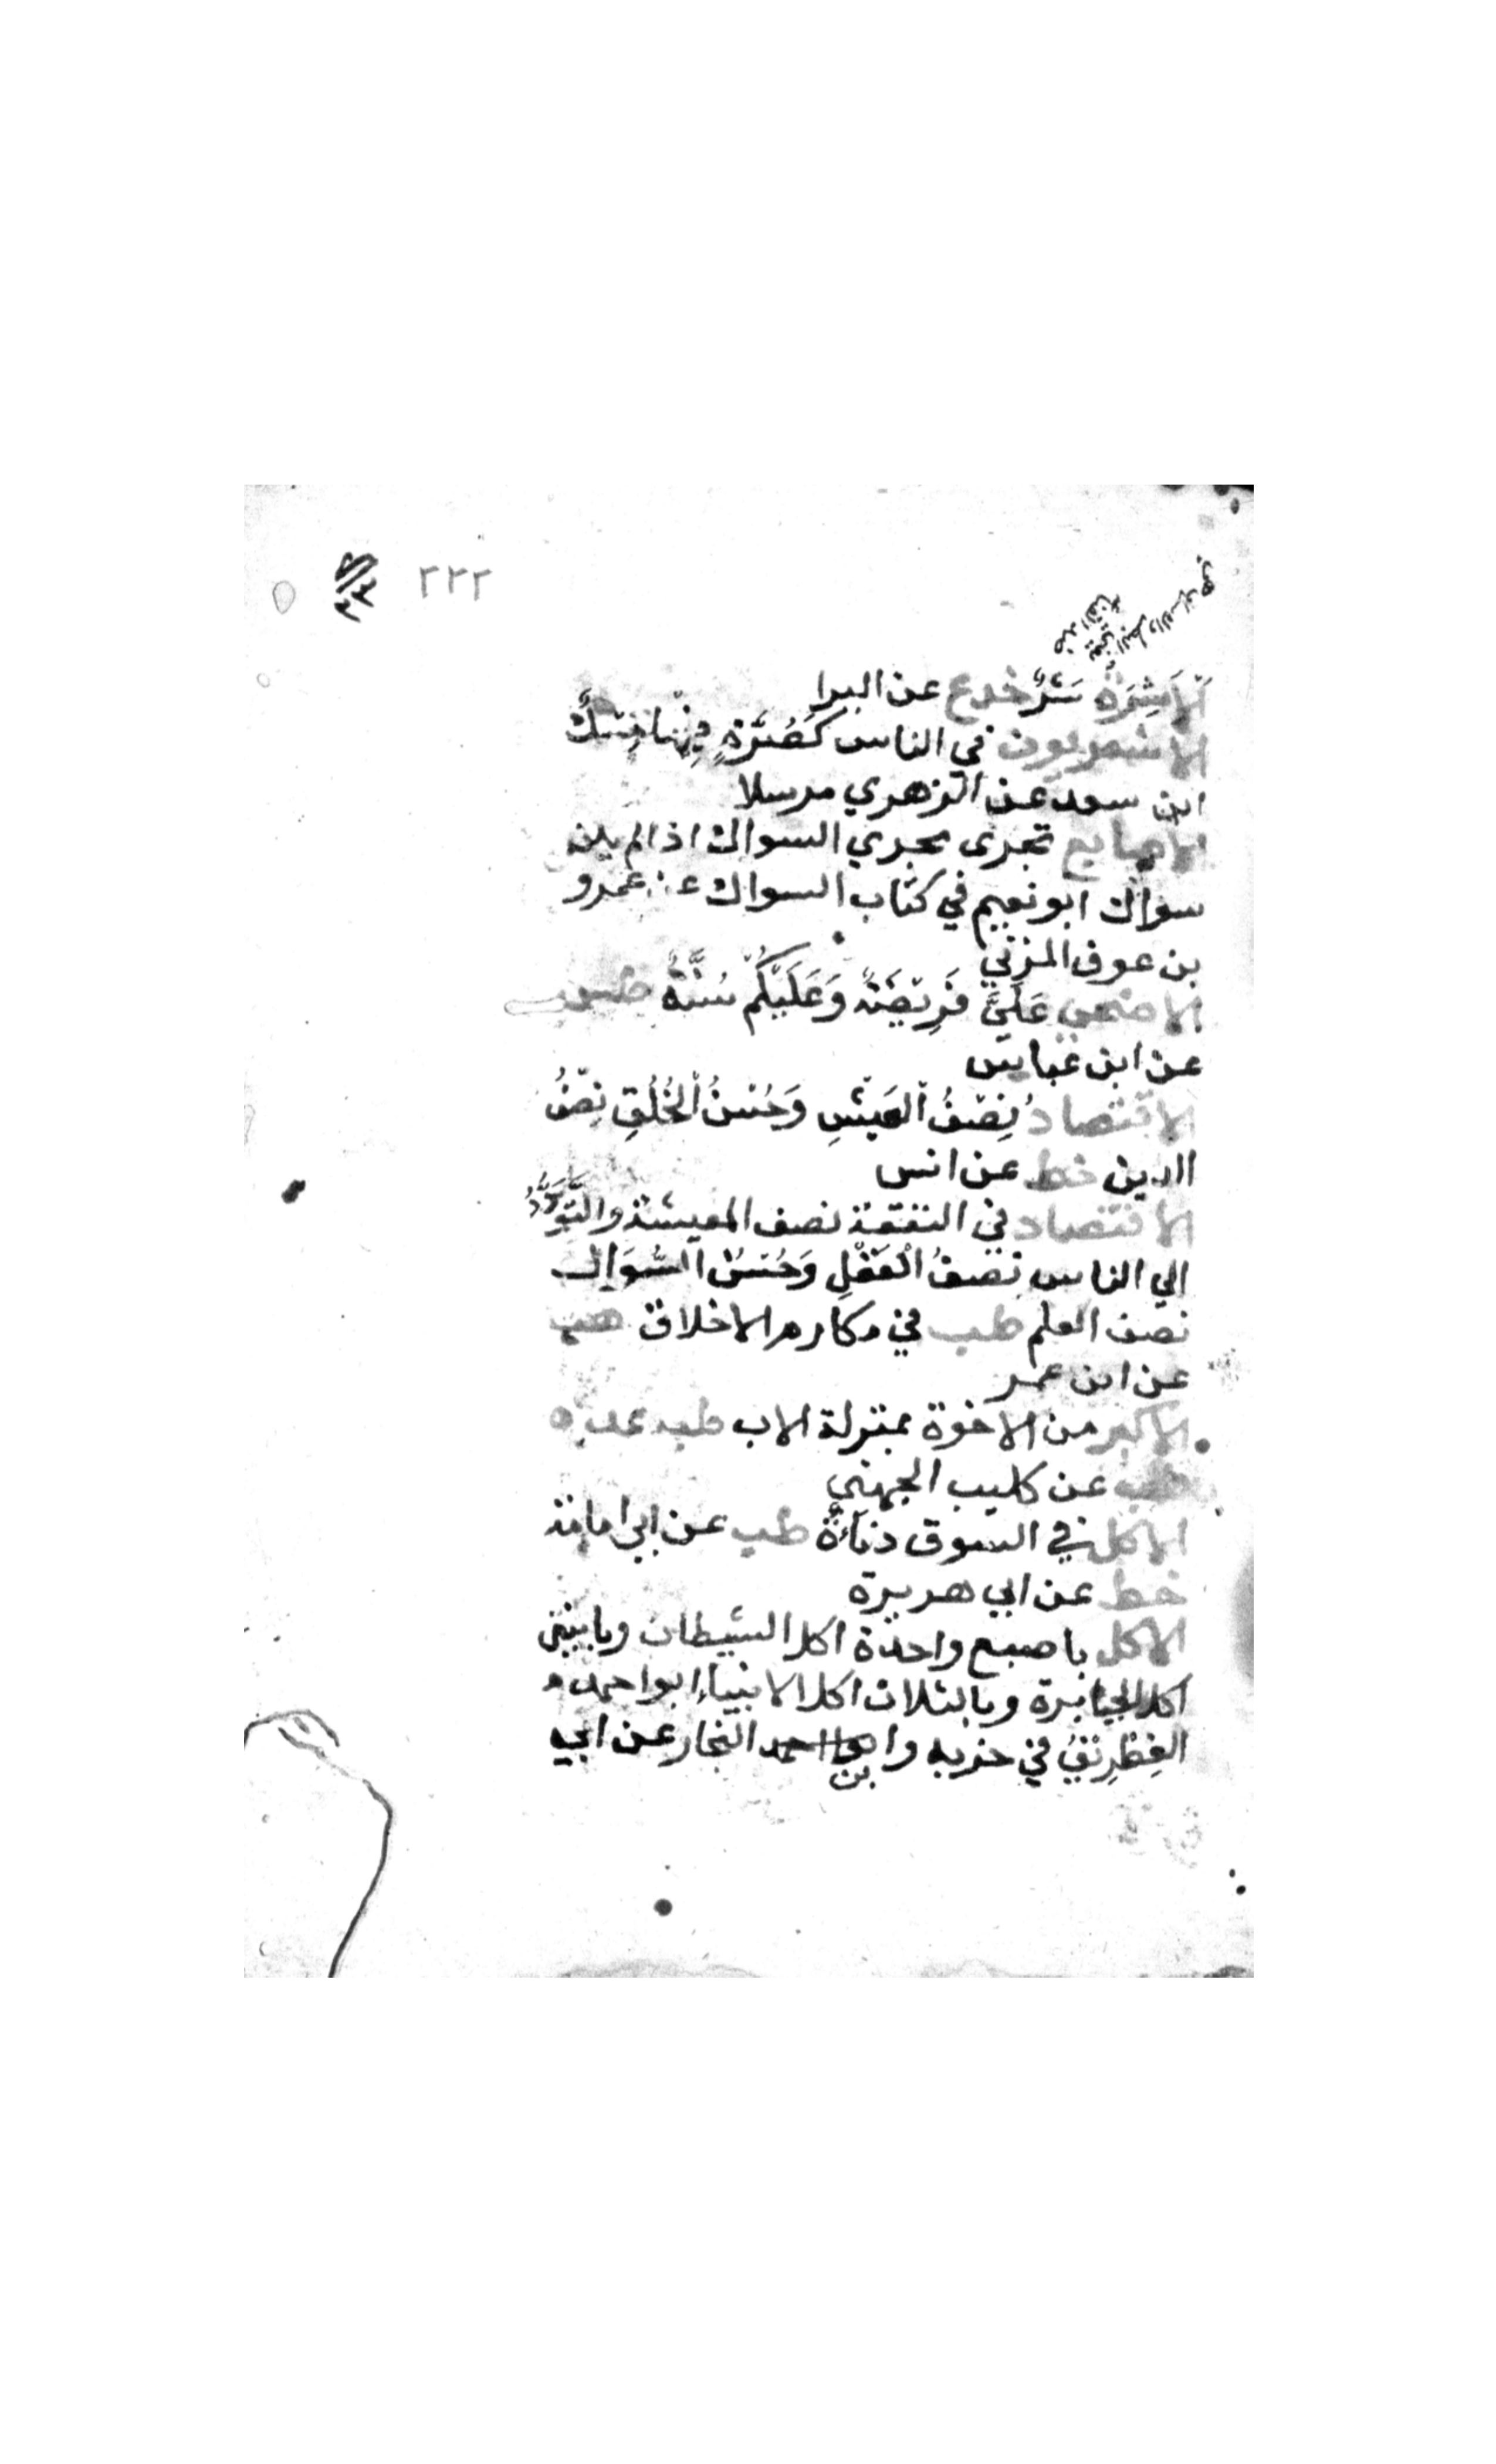 ٢٢٢
اَلْاَشِرَةُ شَرٌّ خدع عن البرا
الاشعريون في الناس كَصُرَّةٍ فِيْهَا مِسْكٌ
ابن سعد عن الزهري مرسلا
الاصابع تجرى مجري السواك اذا لم يكن
سواك ابو نعيم في كتاب السواك عن عمرو
بن عوف المزني
الاضحي عَلَيَّ فَرِيْضَةٌ وَعَلَيْكُمْ سُنَّةٌ طب
عن ابن عباس
الاقتصادُ نِصْفُ الْعَيْشِ وَحُسْنُ الْخُلُقِ نِصْفُ
الدين خط عن انس
الاقتصاد في النفقة نصف المعيشة والتَّوَدُّدُ
الي الناس نصفُ الْعَقْلِ وَحُسْنُ السُّوَالِ
نصف العلم طب في مكارم الاخلاق هب
عن ابن عمر
الاكبر من الاخوة بمنزلة الاب طب عد
هب عن كليب الجهني
الاكل في السوق دناءَةٌ طب عن ابي امامة
خط عن ابي هريرة
الاكل باصبع واحدة اكل الشيطان وباثنين
اكل الجبابرة وبالثلاث اكل الانبياء ابو احمد
الغِطْرِيْفُ في جزيه وابن النجار عن ابي